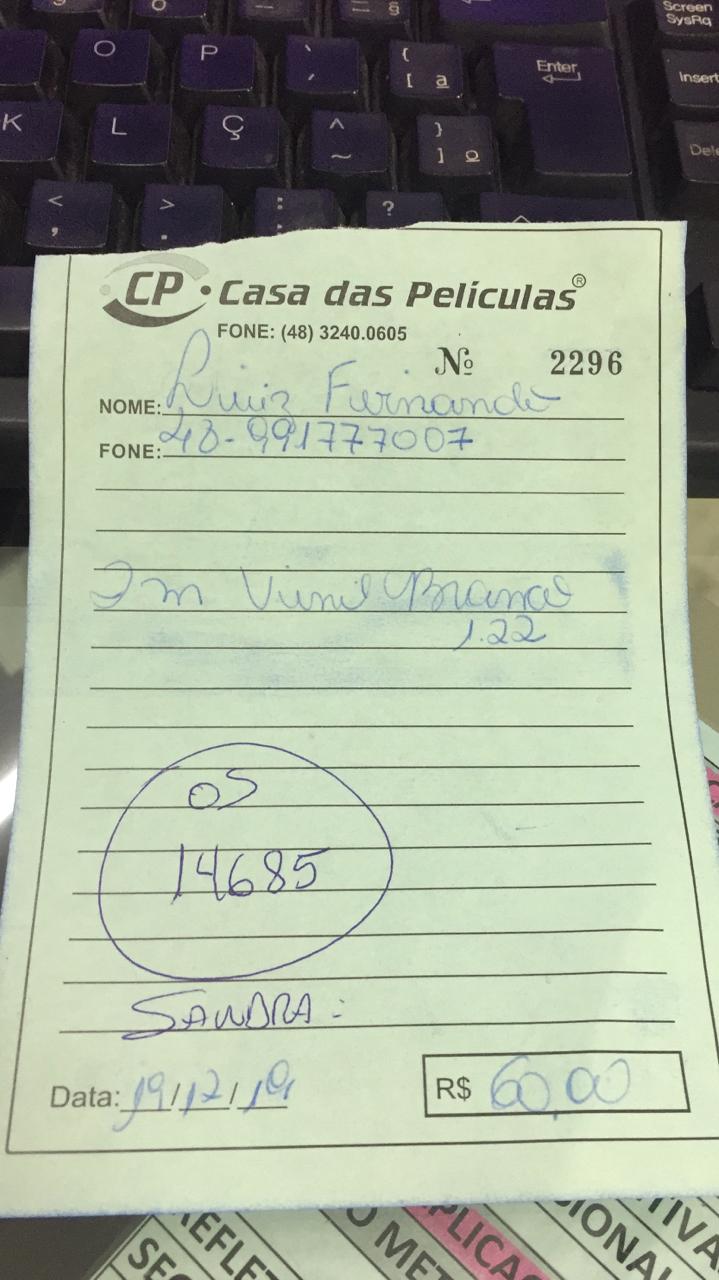 Screen
SysRq
O
P
`
´
{
[ ª
Enter
Insert
K
L
Ç
^
~
}
] º
Del
<
,
>
.
:
;
?
CP • Casa das Películas®
FONE: (48) 3240.0605
Nº 2296
NOME: Luiz Fernando
FONE: 48-991777007
2m Vinil Branco
1.22
OS
14685
SANDRA:
Data: 19/12/19
R$ 60,00